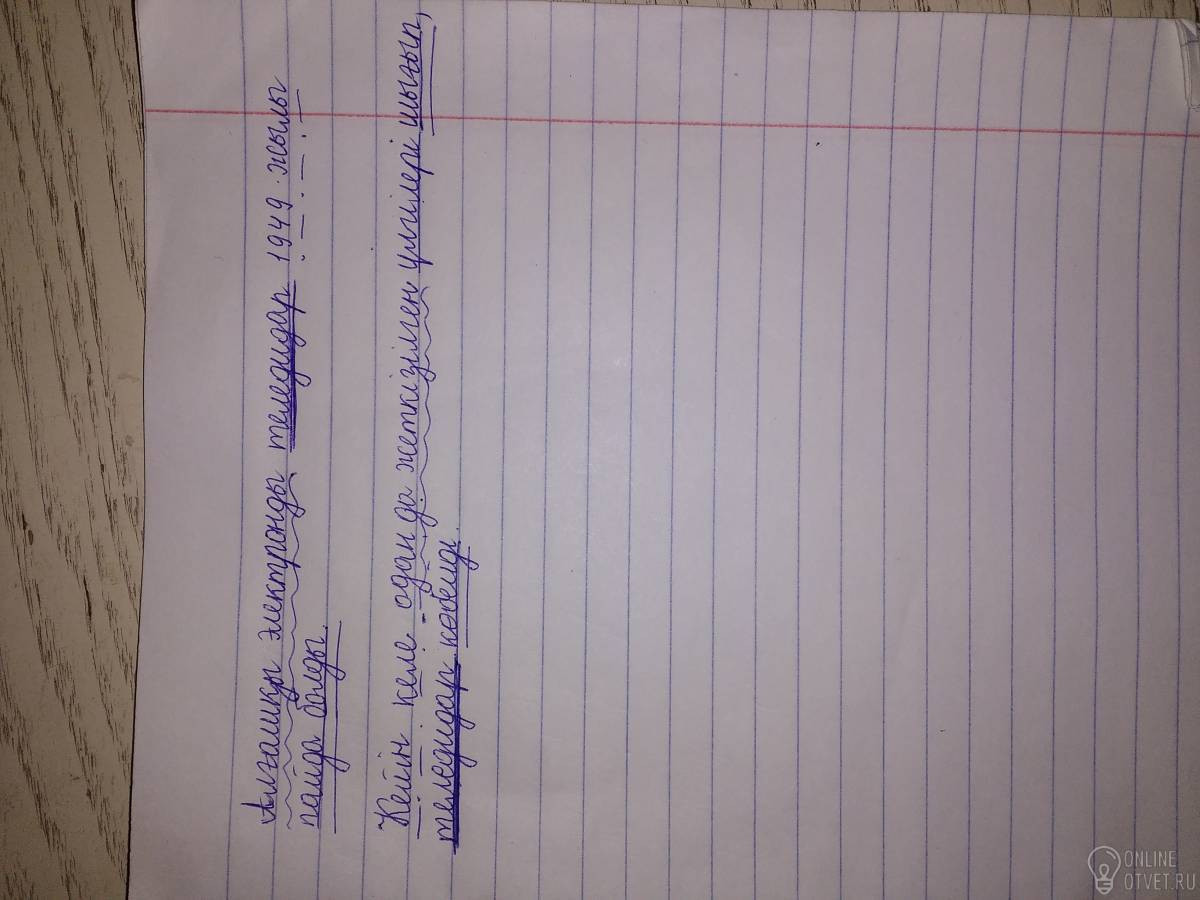 Алғашқы электронды теледидар 1949 жылы
пайда болды.
Кейін келе одан да жеткізілген үлгілері шығып,
теледидар көбейді.
ONLINE
OTVET.RU